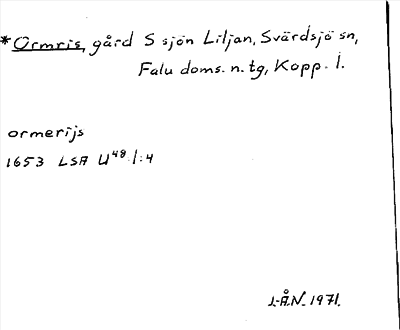 *Ormris, gård S sjön Liljan, Svärdsjö sn,
Falu doms. n. tg, Kopp. l.
ormerijs
1653 LSA U⁴⁸:1:4
J.Å.N. 1971.